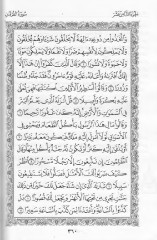 الجزء الثامن عشر
سورة الفرقان
وَاتَّخَذُوا مِن دُونِهِ ءَالِهَةً لَّا يَخْلُقُونَ شَيْئًا وَهُمْ يُخْلَقُونَ
وَلَا يَمْلِكُونَ لِأَنفُسِهِمْ ضَرًّا وَلَا نَفْعًا وَلَا يَمْلِكُونَ مَوْتًا
وَلَا حَيَوٰةً وَلَا نُشُورًا ٣ وَقَالَ الَّذِينَ كَفَرُوا إِنْ هَٰذَا
إِلَّا إِفْكٌ افْتَرَىٰهُ وَأَعَانَهُ عَلَيْهِ قَوْمٌ ءَاخَرُونَ فَقَدْ جَاءُو
ظُلْمًا وَزُورًا ٤ وَقَالُوا أَسَٰطِيرُ الْأَوَّلِينَ اكْتَتَبَهَا فَهِيَ
تُمْلَىٰ عَلَيْهِ بُكْرَةً وَأَصِيلًا ٥ قُلْ أَنزَلَهُ الَّذِي يَعْلَمُ السِّرَّ
فِي السَّمَٰوَٰتِ وَالْأَرْضِ إِنَّهُ كَانَ غَفُورًا رَّحِيمًا ٦ وَقَالُوا
مَالِ هَٰذَا الرَّسُولِ يَأْكُلُ الطَّعَامَ وَيَمْشِي فِي الْأَسْوَاقِ
لَوْلَا أُنزِلَ إِلَيْهِ مَلَكٌ فَيَكُونَ مَعَهُ نَذِيرًا ٧ أَوْ يُلْقَىٰ
إِلَيْهِ كَنزٌ أَوْ تَكُونُ لَهُ جَنَّةٌ يَأْكُلُ مِنْهَا وَقَالَ
الظَّٰلِمُونَ إِن تَتَّبِعُونَ إِلَّا رَجُلًا مَّسْحُورًا ٨ انظُرْ كَيْفَ
ضَرَبُوا لَكَ الْأَمْثَٰلَ فَضَلُّوا فَلَا يَسْتَطِيعُونَ سَبِيلًا ٩
تَبَارَكَ الَّذِي إِن شَاءَ جَعَلَ لَكَ خَيْرًا مِّن ذَٰلِكَ جَنَّٰتٍ
تَجْرِي مِن تَحْتِهَا الْأَنْهَٰرُ وَيَجْعَل لَّكَ قُصُورًا ١٠ بَلْ
كَذَّبُوا بِالسَّاعَةِ وَأَعْتَدْنَا لِمَن كَذَّبَ بِالسَّاعَةِ سَعِيرًا ١١
٣٦٠